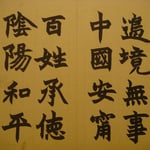 邊境無事
中國安甯
百姓承徳
陰陽和平